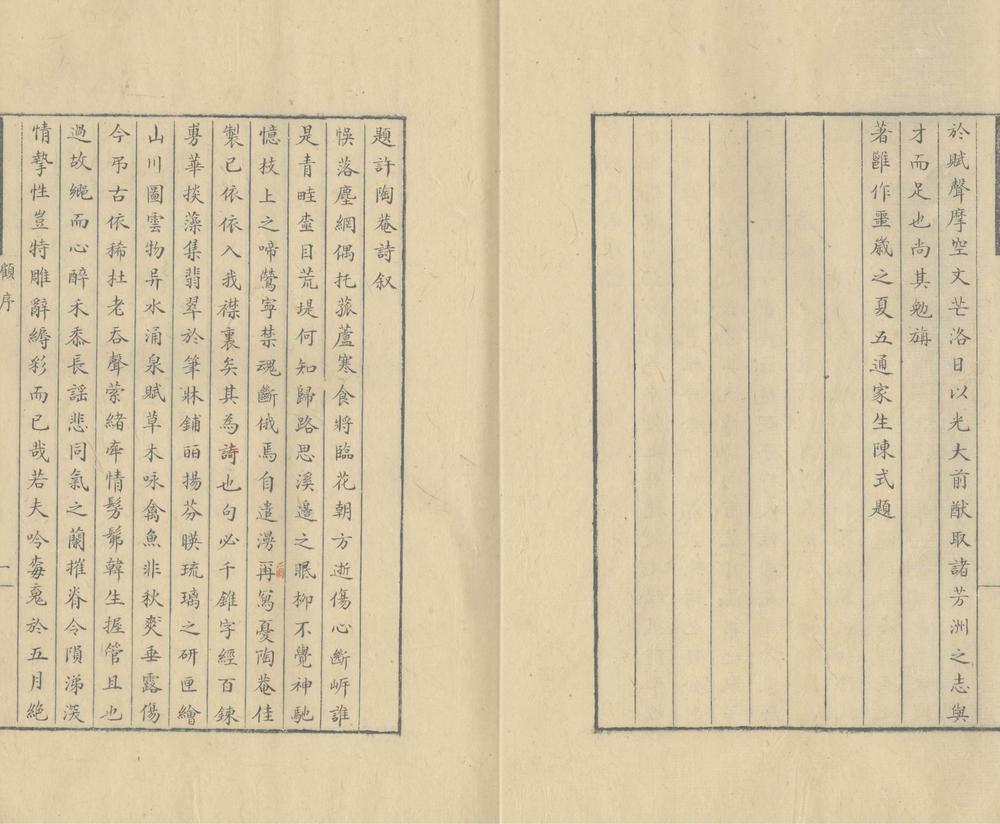 於賦聲摩空文芒洛日以光大前猷取諸芳洲之志與
才而足也尚其勉旃
著雝作噩歲之夏五通家生陳式題
題許陶菴詩叙
悞落塵網偶托菰蘆寒食將臨花朝方逝傷心斷岸誰
是青畦蚃目荒堤何知歸路思溪邊之眠柳不覺神馳
憶枝上之啼鶯寧禁魂斷俄焉自遣漫再寫憂陶菴佳
製已依依入我襟裏矣其為詩也句必千錐字經百鍊
尃華掞藻集翡翠於筆牀鋪葩揚芬暎琉璃之研匣繪
山川圖雲物异水涌泉賦草木咏禽魚非秋爽垂露傷
今弔古依稀杜老吞聲縈緒牽情髣髴韓生握管且也
過故繩而心醉禾黍長謡悲同氣之蘭摧脊令隕涕深
情摯性豈特雕辭縟彩而已哉若夫吟毎兎於五月絶
顧序
一